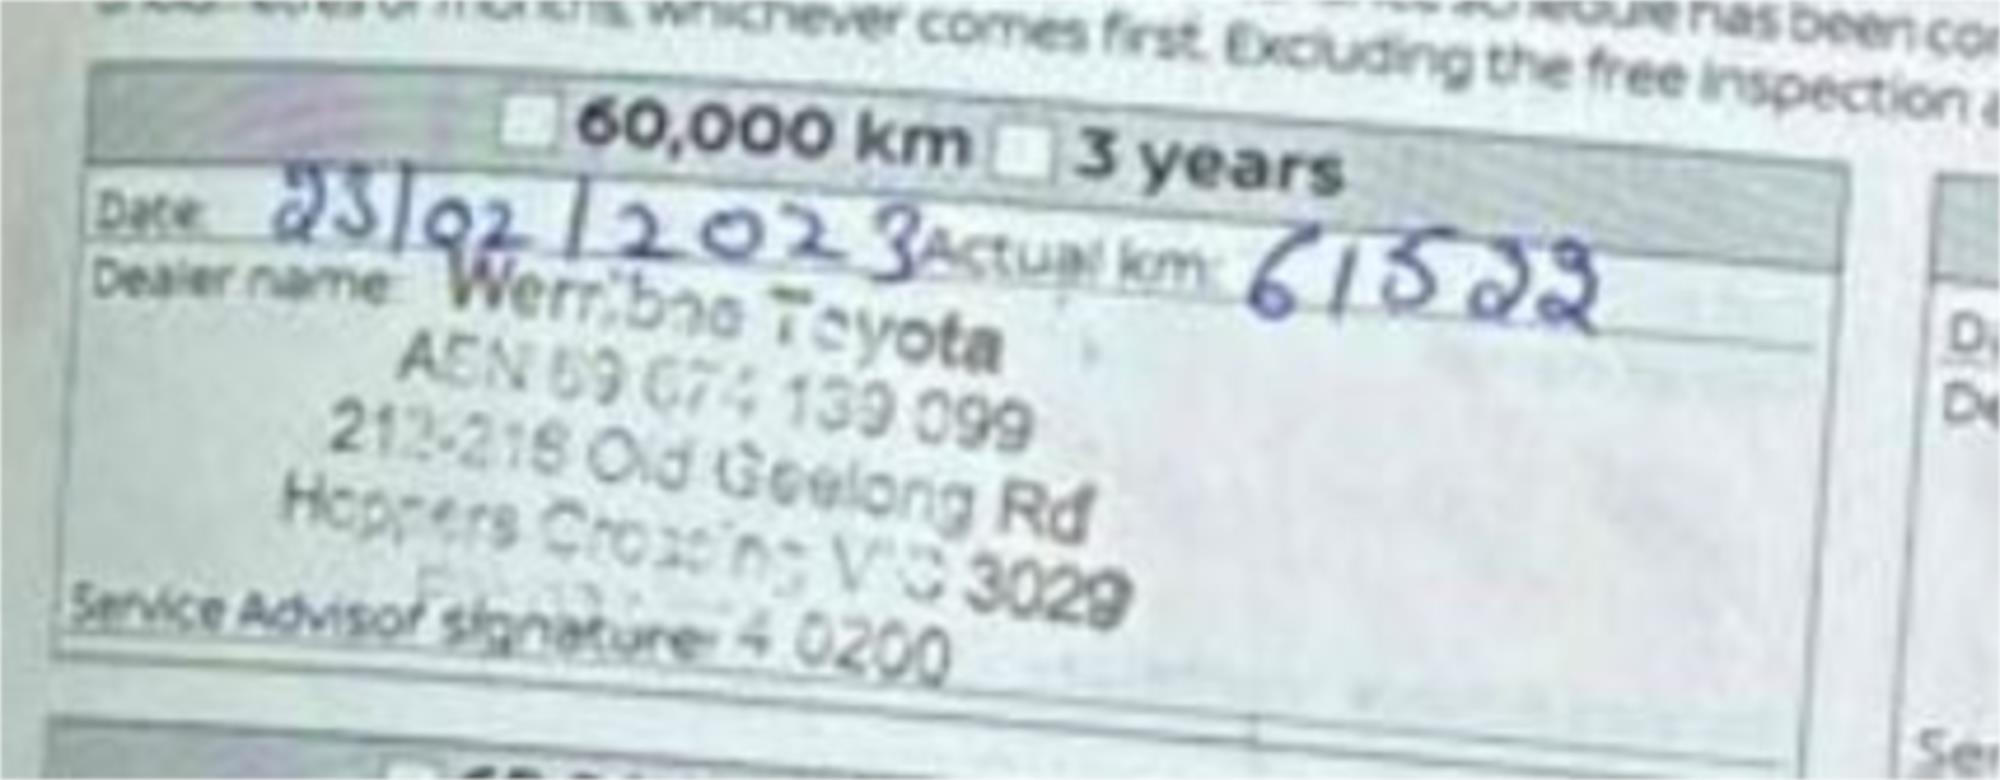 months, whichever comes first. Excluding the free inspection
schedule has been
60,000 km 3 years
Date: 23/02/2023 Actual km: 61522
Dealer name: Werribee Toyota
139 099
Old Geelong Rd
Hoppers Crossing VIC 3029
Service Advisor signature: 0200